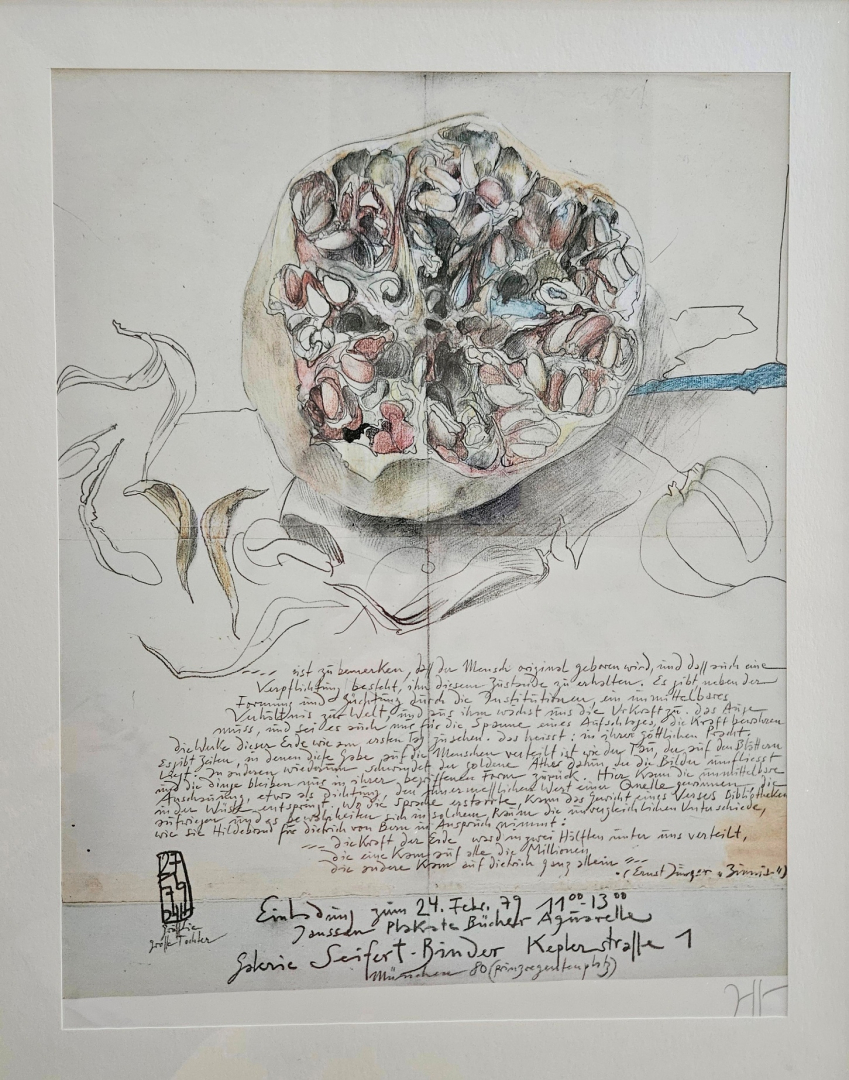 ---- ist zu bemerken, daß der Mensch original geboren wird, und daß auch eine
Verpflichtung besteht, ihn diesem Zustande zu erhalten. Es gibt neben der
Formung und Züchtung durch die Institutionen, ein unmittelbares
Verhältnis zur Welt, und aus ihm wächst uns die Urkraft zu. das Auge
muss, und sei es auch nur für die Spanne eines Aufschlages, die Kraft bewahren
die Werke dieser Erde wie am ersten Tag zu sehen. Das heisst: in ihrer göttlichen Pracht.
Es gibt Zeiten, in denen diese Gabe auf die Menschen verteilt ist wie der Tau, der auf den Blättern
liegt. In anderen wiederum schwindet der goldene Äther dahin, der die Bilder umfliesst
und die dinge bleiben nur in ihrer begriffenen Form zurück. Hier kann die unmittelbare
Anschauung, etwa als Dichtung, den unermeßlichen Wert einer Quelle gewinnen, die
in der Wüste entspringt. Wo die Sprache erstarrte, kann das Gewicht eines Verses Bibliotheken
aufwiegen und es bewahrheiten sich in solchem Raum die unvergleichlichen Unterschiede,
wie sie Hildebrand für dietrich von Bern in Anspruch nimmt:
--- die Kraft der Erde ward in zwei Hälften unter uns verteilt,
die eine kam auf alle die Millionen
die andere kam auf dietrich ganz allein ---
(Ernst Jünger
27
79
große Tochter
Einladung zum 24. Febr. 79 11⁰⁰-13⁰⁰
Janssen Plakate Bücher Aquarelle
Galerie Seifert-Binder Keplerstraße 1
München 80 (prinzregentenplatz)